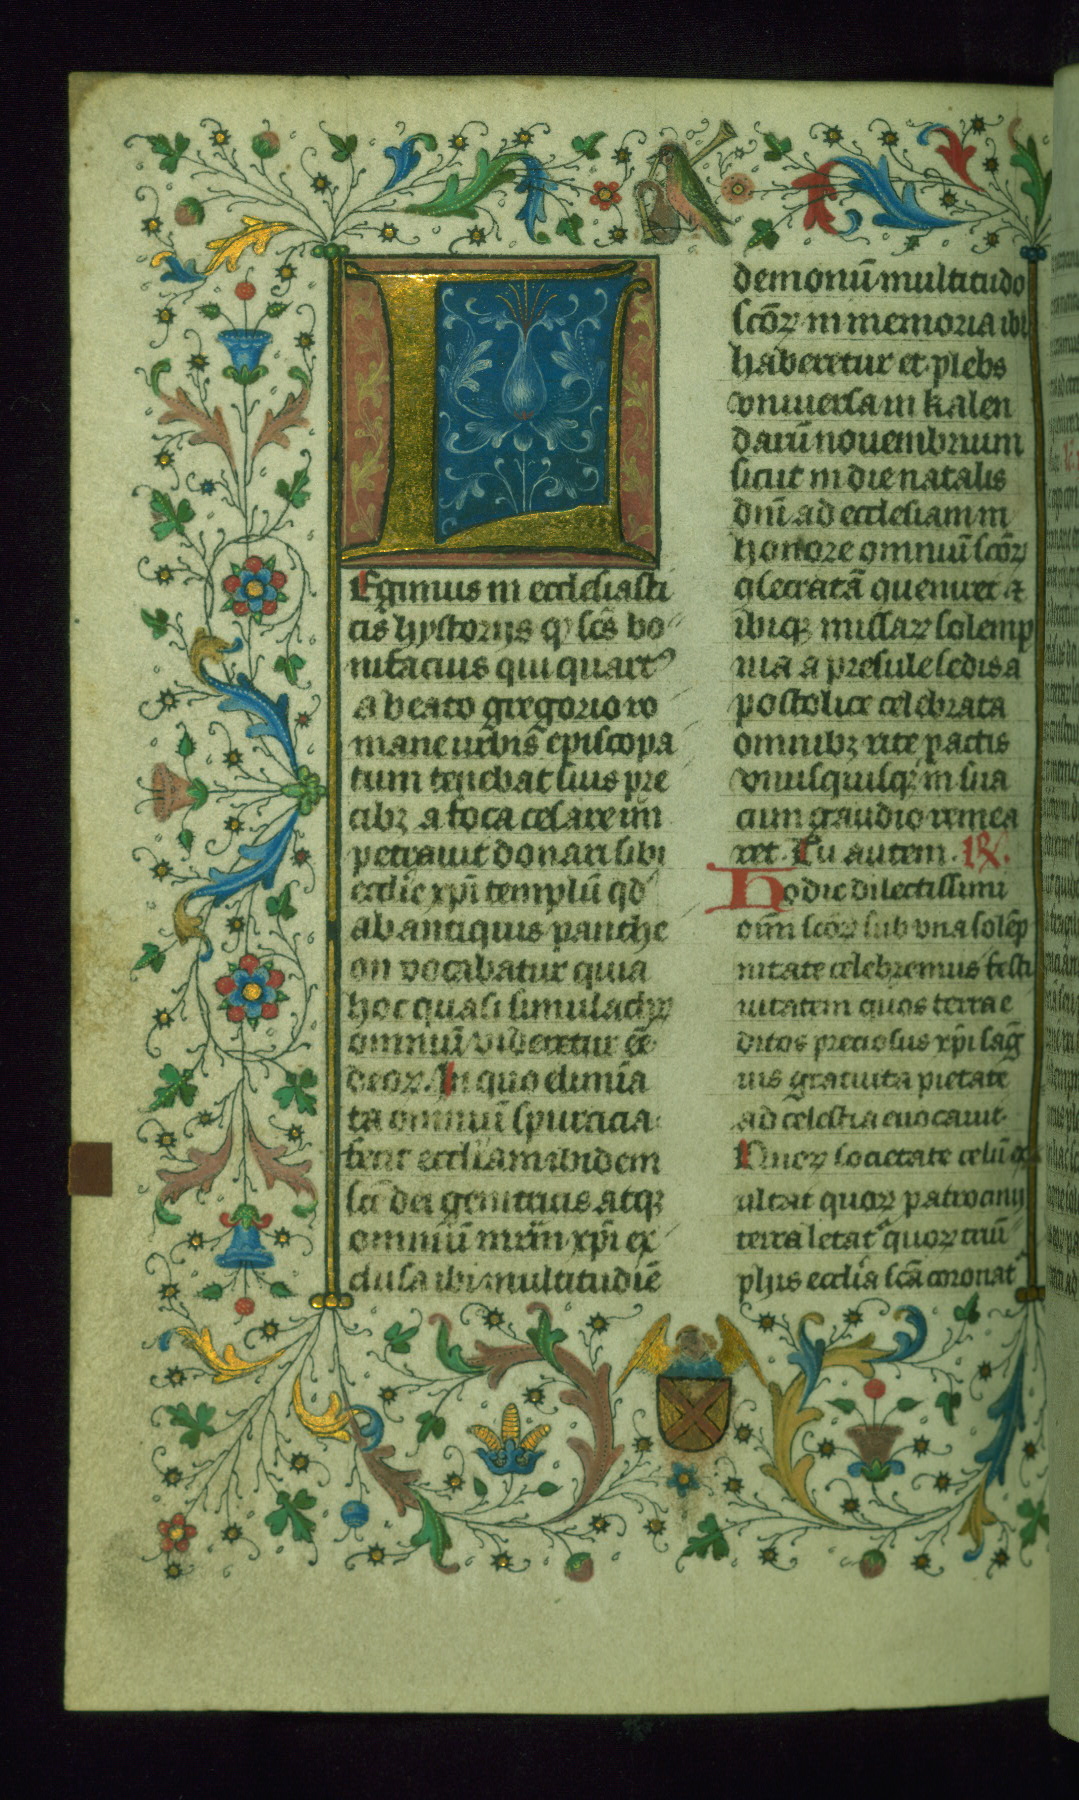 L
Egimus in ecclesiasti
cis hystorijs qͥ scs̄ bo
nifacius qui quart⁹
a beato gregorio ro
mane urbis episcopa
tum tenebat suis pre
cibꝫ a foca cesare im
petrauit donari sibi
ecclīe xp̄i templū qd̄
ab antiquis panthe
on vocabatur quia
hoc quasi simulachꝝ
omniū videretur eē
deoꝝ. In quo elimīa
ta omniū spurcicia
fecit eccl'iam ibidem
scē dei genitricis atqꝫ
omniū mr̄m xp̄i ex
clusa ibi multitudīe
demonū multitudo
scōꝝ in memoria ibi
haberetur et plebs
vniuersa in kalen
darū nouembrium
sicut in die natalis
dn̄i ad ecclesiam in
honore omniū scōꝝ
ꝯsecratā queniret ⁊
ibiqꝫ missaꝝ solemp
nia a presule sedis a
postolice celebrata
omnibꝫ rite pactis
vnusquisqꝫ in sua
cum gaudio remea
ret. Tu autem. R̸.
Hodie dilectissimi
oīm scōꝝ sub vna solēp
nitate celebremus festi
uitatem quos terra e
ditos preciosus xp̄i sāg
uis gratuita pietate
ad celestia euocauit
Quoꝝ societate celū ex
ultat quoꝝ patrocinij
terra letat᷑ quoꝝ triū
phis ecclīa scā coronat᷑